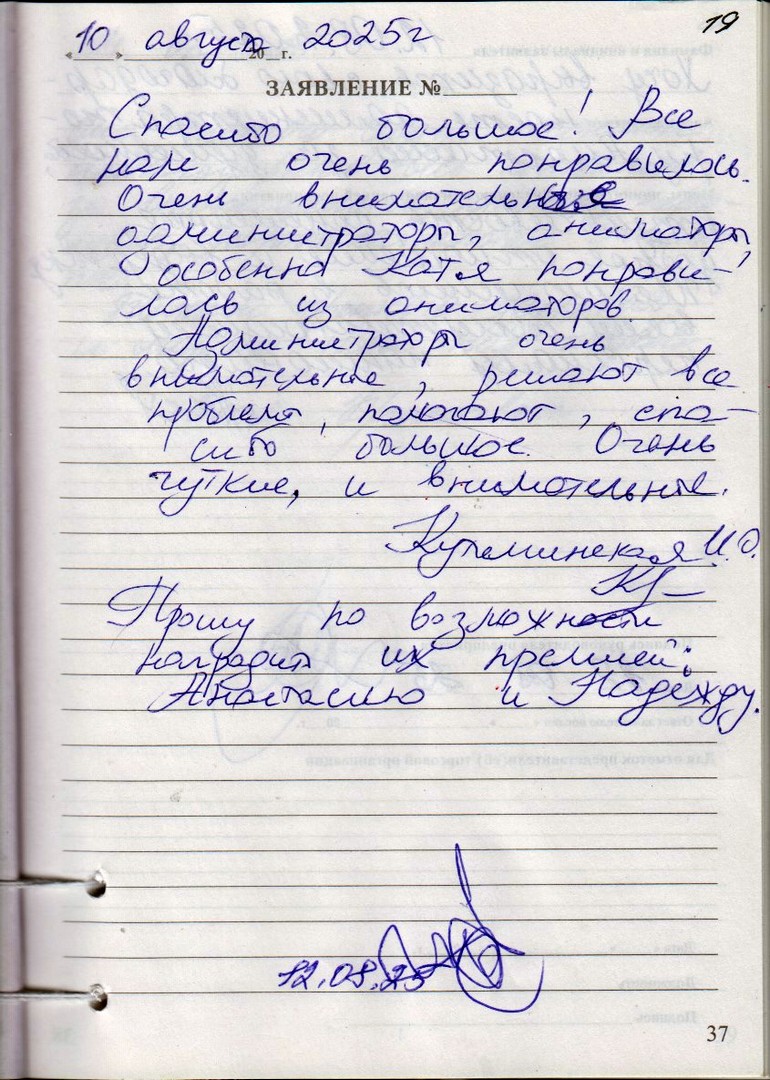 19
«10» августа 2025г
20 г.
ЗАЯВЛЕНИЕ №
Спасибо большое! Все
нам очень понравилось.
Очень внимательные
администраторы, аниматоры,
Особенно Катя понрави-
лась из аниматоров.
Администраторы очень
внимательные, решают все
проблемы, помогают, спа-
сибо большое. Очень
чуткие, и внимательные.
И.О.
Прошу по возможности
наградить их премией:
Анастасию и Надежду.
12.08.25
37